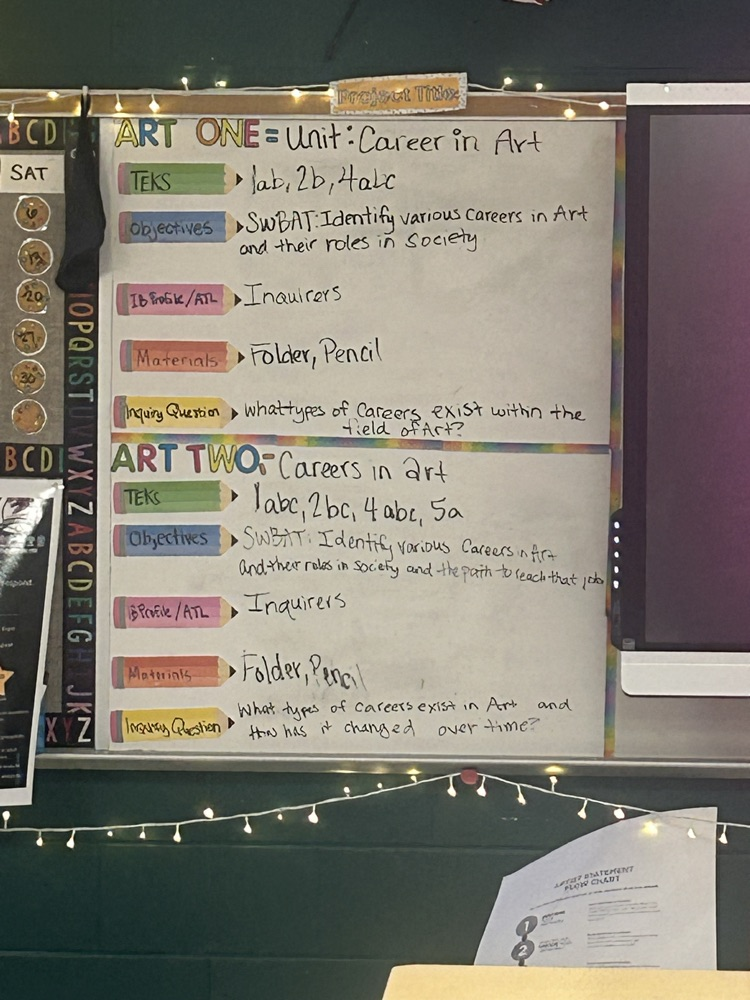 Project Title
BCD
SAT
6
13
20
27
30
BCD
OPQRSTUVWXYZ ABCDEFGH JKZ
XYZ
respond.
ART ONE = Unit: Career in Art
TEKS 1ab, 2b, 4abc
Objectives SWBAT: Identify various careers in Art
and their roles in Society
IB Profile/ATL Inquirers
Materials Folder, Pencil
Inquiry Question What types of Careers exist within the
field of Art?
ART TWO:- Careers in art
TEKS 1abc, 2bc, 4abc, 5a
Objectives SWBAT: Identify various Careers in Art
and their roles in society and the path to reach that job
IB Profile/ATL Inquirers
Materials Folder, Pencil
Inquiry Question What types of careers exist in Art and
How has it changed over time?
ARTIST STATEMENT
FLOW CHART
1
2